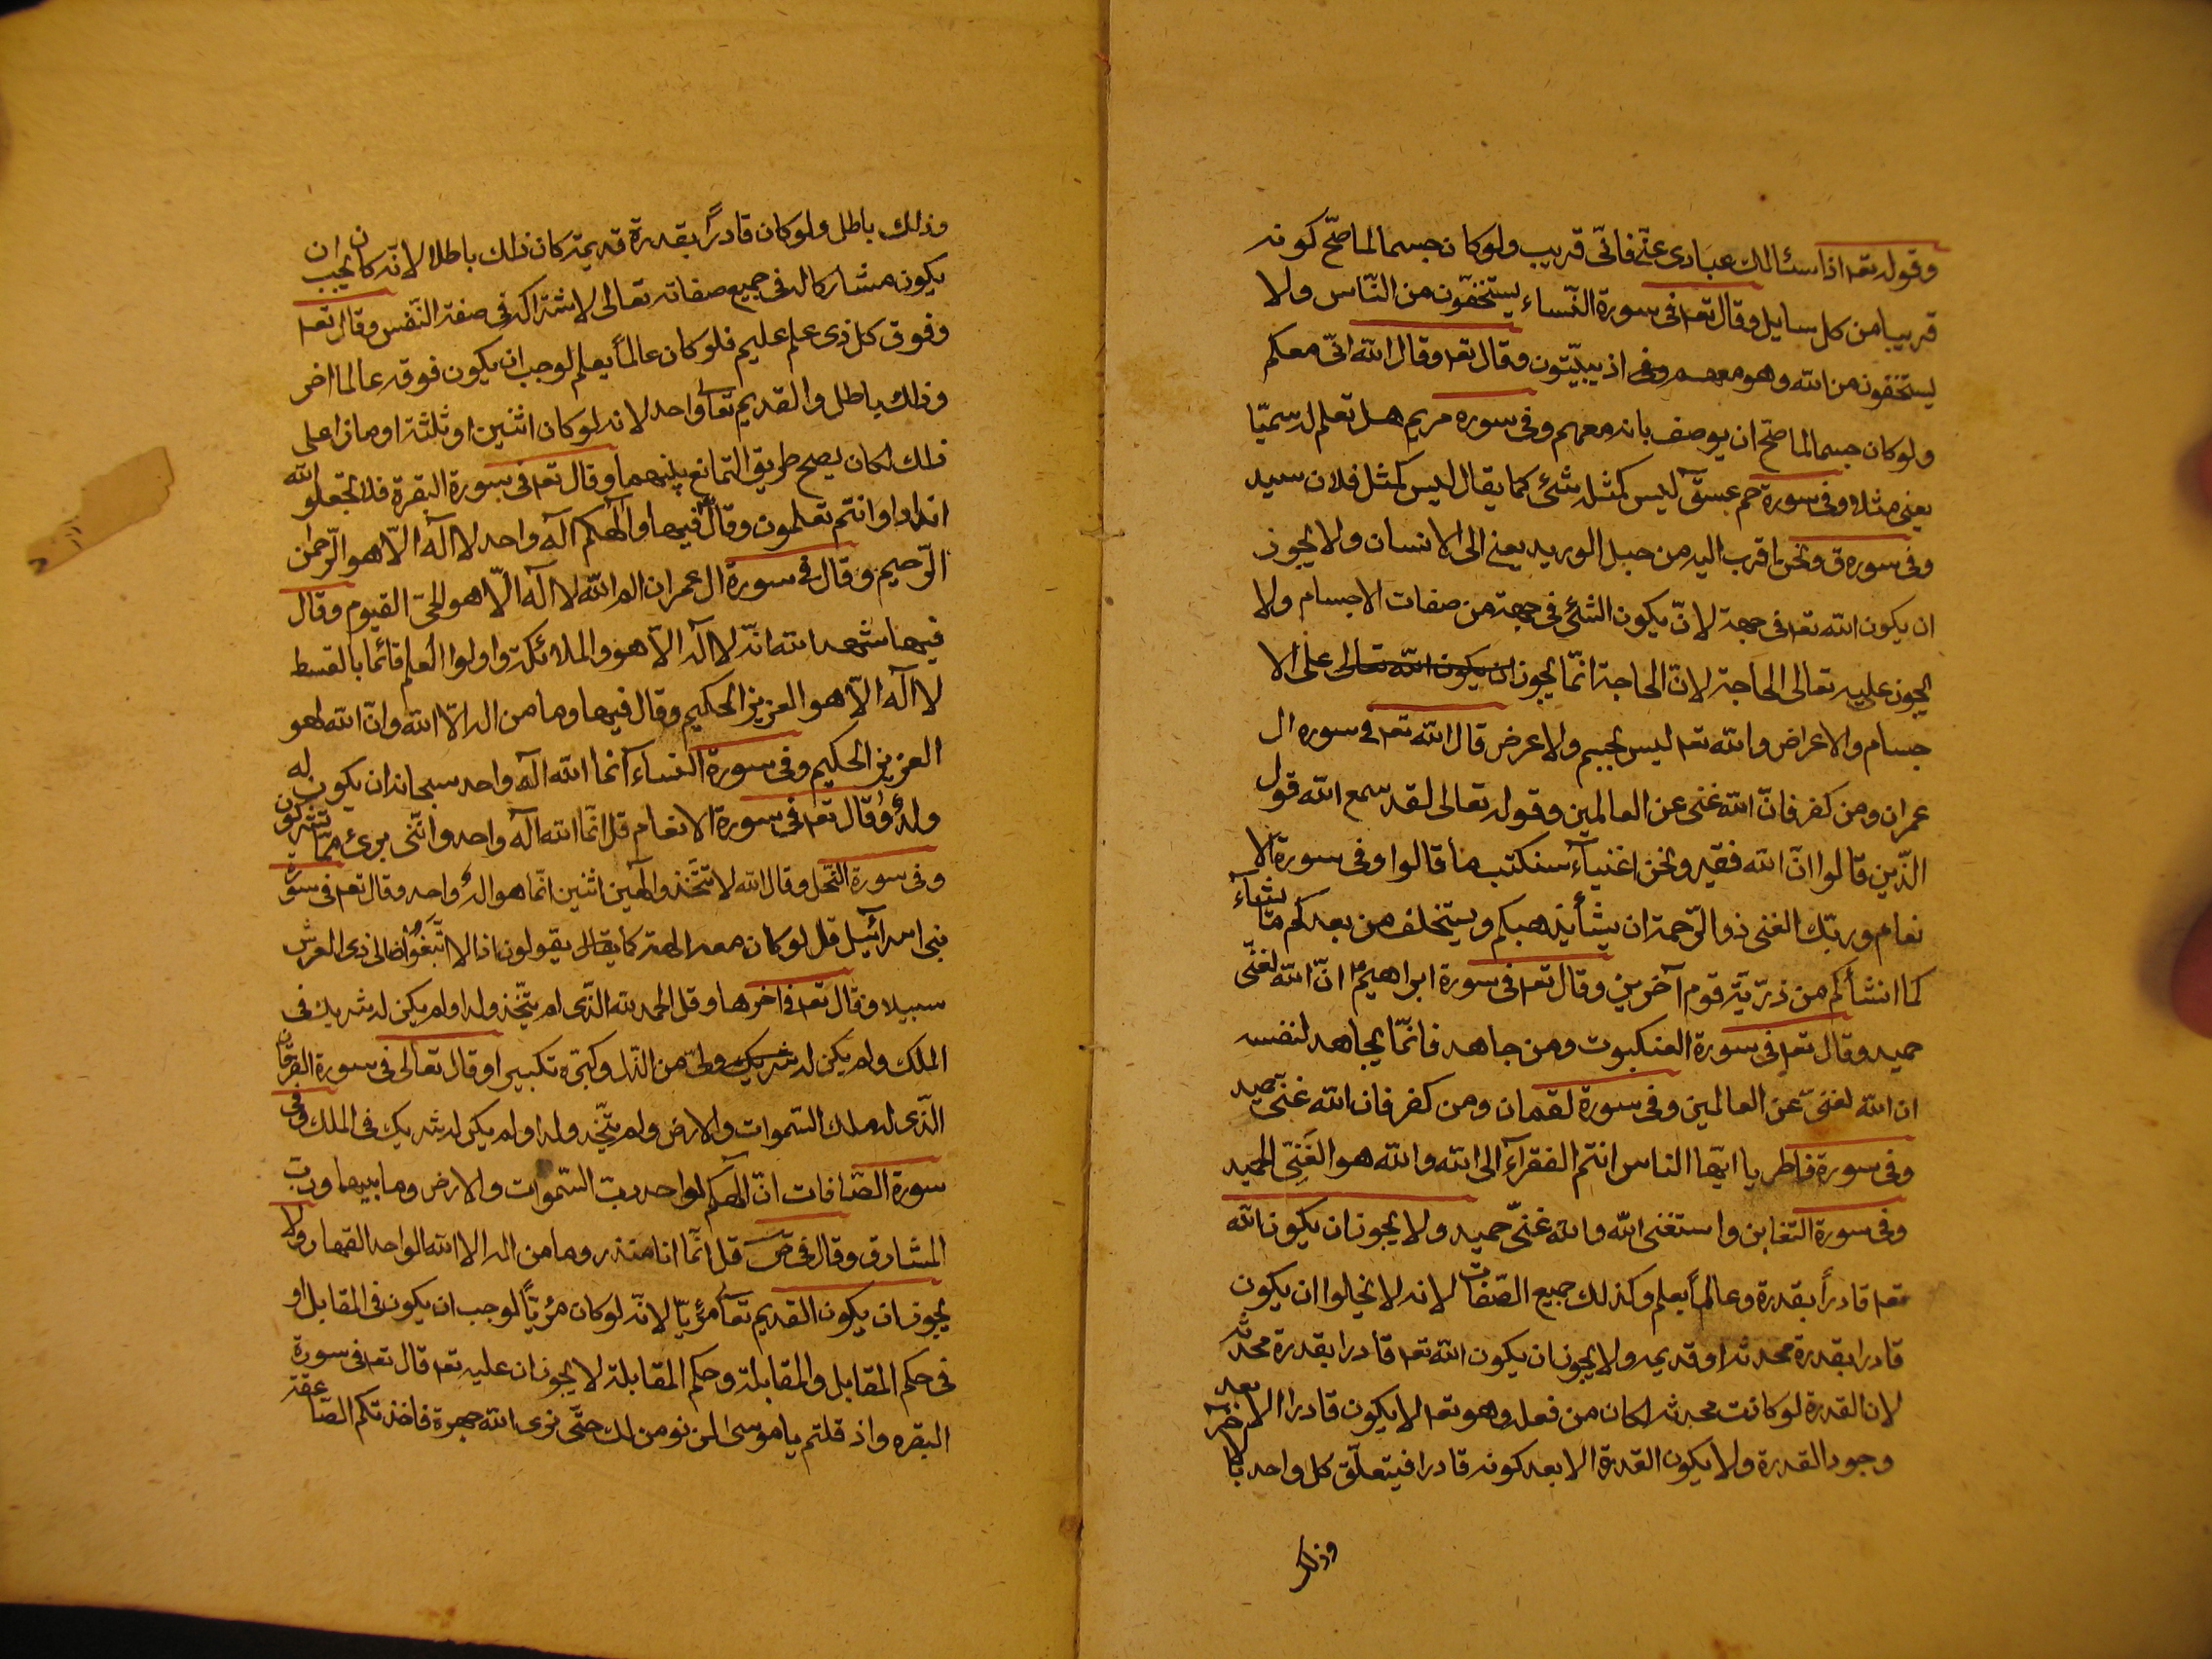 وقوله تعه اذا سئالك عبادى عنّى فانّى قريب ولو كان جسما لما صحّ كونه
قريبا من كل سايل وقال تعه فى سورة النّساء يستخفّون من النّاس ولا
يستخفون من الله وهو معهم اذ يبيّتون وقال تعه وقال الله انّى معكم
ولو كان جسما لما صحّ ان يوصف بانه معهم وفى سوره مريم هل تعلم له سميّا
يعنى مثلا وفى سورة حم عسق ليس كمثله شئ كما يقال ليس كمثل فلان سيد
وفى سوره ق ونحن اقرب اليه من حبل الوريد يعنى الى الانسان ولا يجوز
ان يكون الله تعه فى جهة لانّ يكون الشئ فى جهة من صفات الاجسام ولا
يجوز عليه تعالى الحاجة لانّ الحاجة انّما يجوز ان يكون الله تعالى على الا
جسام والاعراض والله تعه ليس بجسم ولا عرض قال الله تعه فى سوره ال
عمران ومن كفر فانّ الله غنى عن العالمين وقوله تعالى لقد سمع الله قول
الّذين قالوا انّ الله فقير ونحن اغنيآء سنكتب ما قالوا وفى سورة الا
نعام وربّك الغنى ذو الرّحمة ان يشأ يذهبكم ويستخلف من بعدكم ما يشآء
كما انشأكم من ذرّيّة قوم آخرين وقال تعه فى سورة ابراهيم انّ الله لغنّى
حميد وقال تعه فى سورة العنكبوت ومن جاهد فانّما يجاهد لنفسه
ان الله لغنىّ عن العالمين وفى سورة لقمان ومن كفر فان الله غنىّ حميد
وفى سورة فاطر يا ايّها الناس انتم الفقرآء الى الله والله هو الغَنِىّ الحميد
وفى سورة التغابن واستغنى الله والله غنىّ حميد ولا يجوز ان يكون الله
تعه قادرًا بقدرة وعالمًا بعلم وكذلك جميع الصّفات لانه لا يخلوا ان يكون
قادرا بقدرة محدثه او قديمه ولا يجوز ان يكون الله تعه قادرا بقدرة محدثه
لان القدرة لو كانت محدثه لكان من فعله وهو تعه لا يكون قادرا الا بعد
وجود القدرة ولا يكون القدرة الا بعد كونه قادرا فيتعلّق كل واحد بالاخر
وذلك
وذلك باطل ولو كان قادرًا بقدرة قديمة كان ذلك باطلا لانّه كان يجب ان
يكون مشاركا له فى جميع صفاته تعالى لاشتراكه فى صفة النّفس وقال تعه
وفوق كل ذى علم عليم فلو كان عالمًا بعلم لوجب ان يكون فوقه عالما اخر
وذلك باطل والقديم تعا واحد لانه لو كان اثنين او ثلثة او ما زاد على
ذلك لكان يصح طريق التمانع بينهما وقال تعه فى سورة البقرة فلا تجعلو لله
اندادا وانتم تعلمون وقال فيها والهكم اله واحد لا اله الّا هو الرّحمن
الرّحيم وقال فى سورة ال عمران الم الله لا اله الّا هو الحىّ القيوم وقال
فيها شهد الله انّه لا اله الّا هو والملائكة واولوا العلم قائما بالقسط
لا اله الّا هو العزيز الحكيم وقال فيها وما من اله الّا الله وانّ الله لهو
العزيز الحكيم وفى سورة النساء انّما الله اله واحد سبحانه ان يكون له
ولدٌ وقال تعه فى سورة الانعام قل انّما الله اله واحد وانّنى برئ ممّا تشركون
وفى سورة النّحل وقال الله لا تتّخذوا الهين اثنين انّما هو الهٌ واحد وقال تعه فى سورة
بنى اسرآئيل قل لو كان معه الهة كما يقال يقولون اذا لا ابتغوا الى ذى العرش
سبيلا وقال تعه فى اخرها وقل الحمد لله الّذى لم يتّخذ ولدا ولم يكن له شريك فى
الملك ولم يكن له شريك ولىّ من الذّل وكبّره تكبيرا وقال تعالى فى سورة الفرقان
الّذى له ملك السّموات والارض ولم يتّخذ ولدا ولم يكن له شريك فى الملك وفى
سورة الصّافات انّ الهكم لواحد ربّ السّموات والارض وما بينهما وربّ
المشارق وقال فى صَ قل انّما انا منذر وما من اله الا الله الواحد القهار ولا
يجوز ان يكون القديم تعا مرئيّا لانّه لو كان مرئيّاً لوجب ان يكون فى المقابل او
فى حكم المقابل والمقابلة وحكم المقابلة لا يجوزان عليه تعه قال تعه فى سورة
البقره واذ قلتم يا موسى لن نومن لك حتّى نرى الله جهرة فاخذتكم الصّاعقة